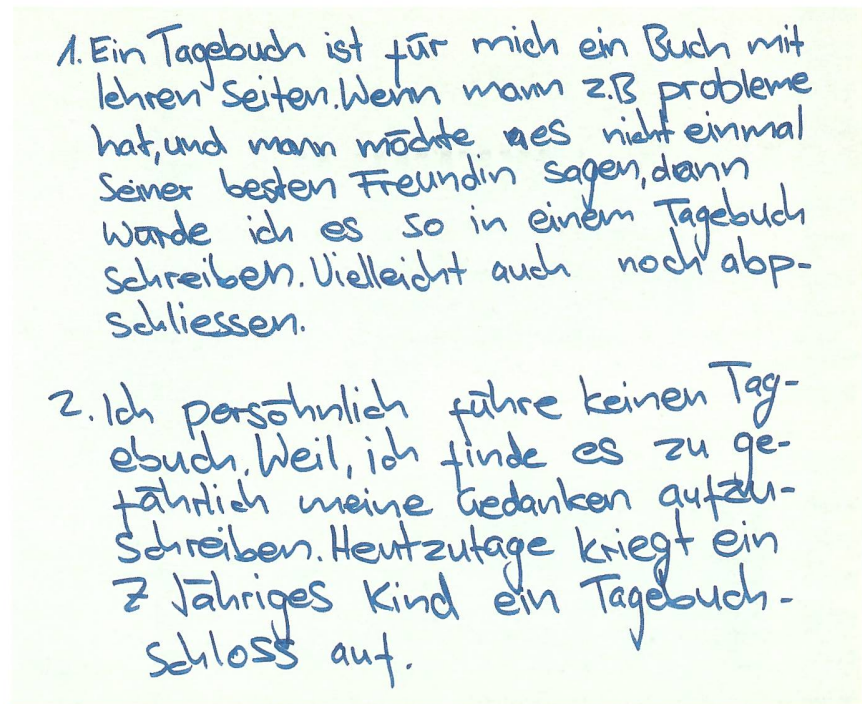 1. Ein Tagebuch ist für mich ein Buch mit
lehren Seiten. Wenn mann z.B probleme
hat, und mann möchte es nicht einmal
seiner besten Freundin sagen, dann
würde ich es so in einem Tagebuch
schreiben. Vielleicht auch noch abp-
schliessen.
2. Ich persöhnlich führe keinen Tag-
ebuch. Weil, ich finde es zu ge-
fährlich meine Gedanken aufzu-
schreiben. Heutzutage kriegt ein
7 Jähriges Kind ein Tagebuch-
schloss auf.